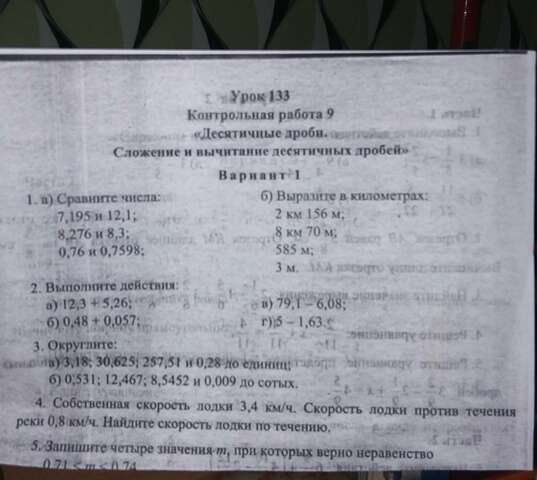 Урок 133
Контрольная работа 9
«Десятичные дроби.
Сложение и вычитание десятичных дробей»
Вариант 1
1. а) Сравните числа: б) Выразите в километрах:
7,195 и 12,1; 2 км 156 м;
8,276 и 8,3; 8 км 70 м;
0,76 и 0,7598; 585 м;
3 м.
2. Выполните действия:
а) 12,3 + 5,26; в) 79,1 – 6,08;
б) 0,48 + 0,057; г) 5 – 1,63.
3. Округлите:
а) 3,18; 30,625; 257,51 и 0,28 до единиц;
б) 0,531; 12,467; 8,5452 и 0,009 до сотых.
4. Собственная скорость лодки 3,4 км/ч. Скорость лодки против течения
реки 0,8 км/ч. Найдите скорость лодки по течению.
5. Запишите четыре значения m, при которых верно неравенство
0,71 < m < 0,74